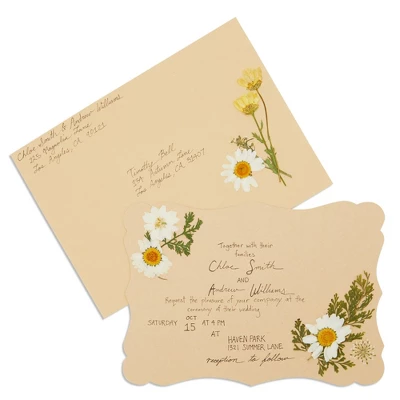 Chloe Smith & Andrew Williams
Magnolia Lane
Los Angeles, CA
Timothy Bell
Autumn Lane
Los Angeles, CA
Together with their
families
Chloe Smith
AND
Andrew Williams
Request the pleasure of your company at the
ceremony of their wedding
SATURDAY OCT 15 AT 4 PM
AT
HAVEN PARK
1321 SUMMER LANE
reception to follow